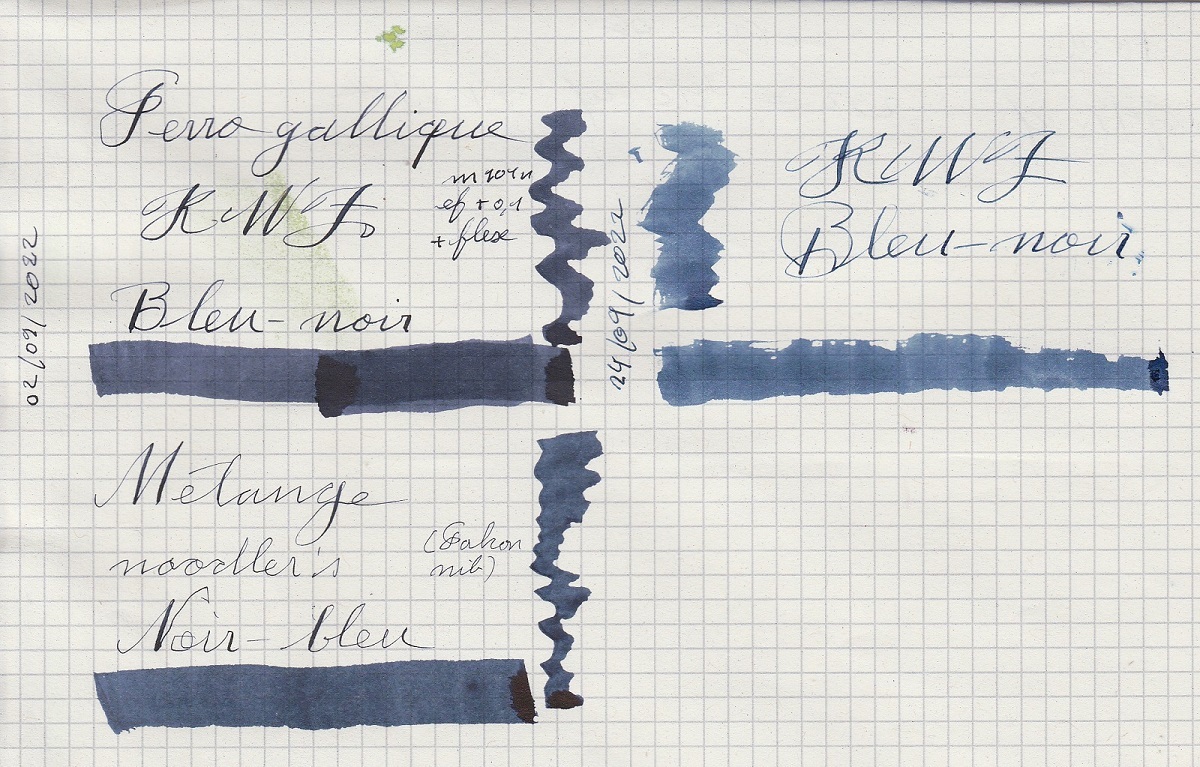 Ferro-gallique
KWZ
m 1041
ef + 0,1
+ flex
Bleu-noir
02/09/2022
Mélange
noodler's
(Falcon
nib)
Noir-bleu
24/09/2022
KWZ
Bleu-noir